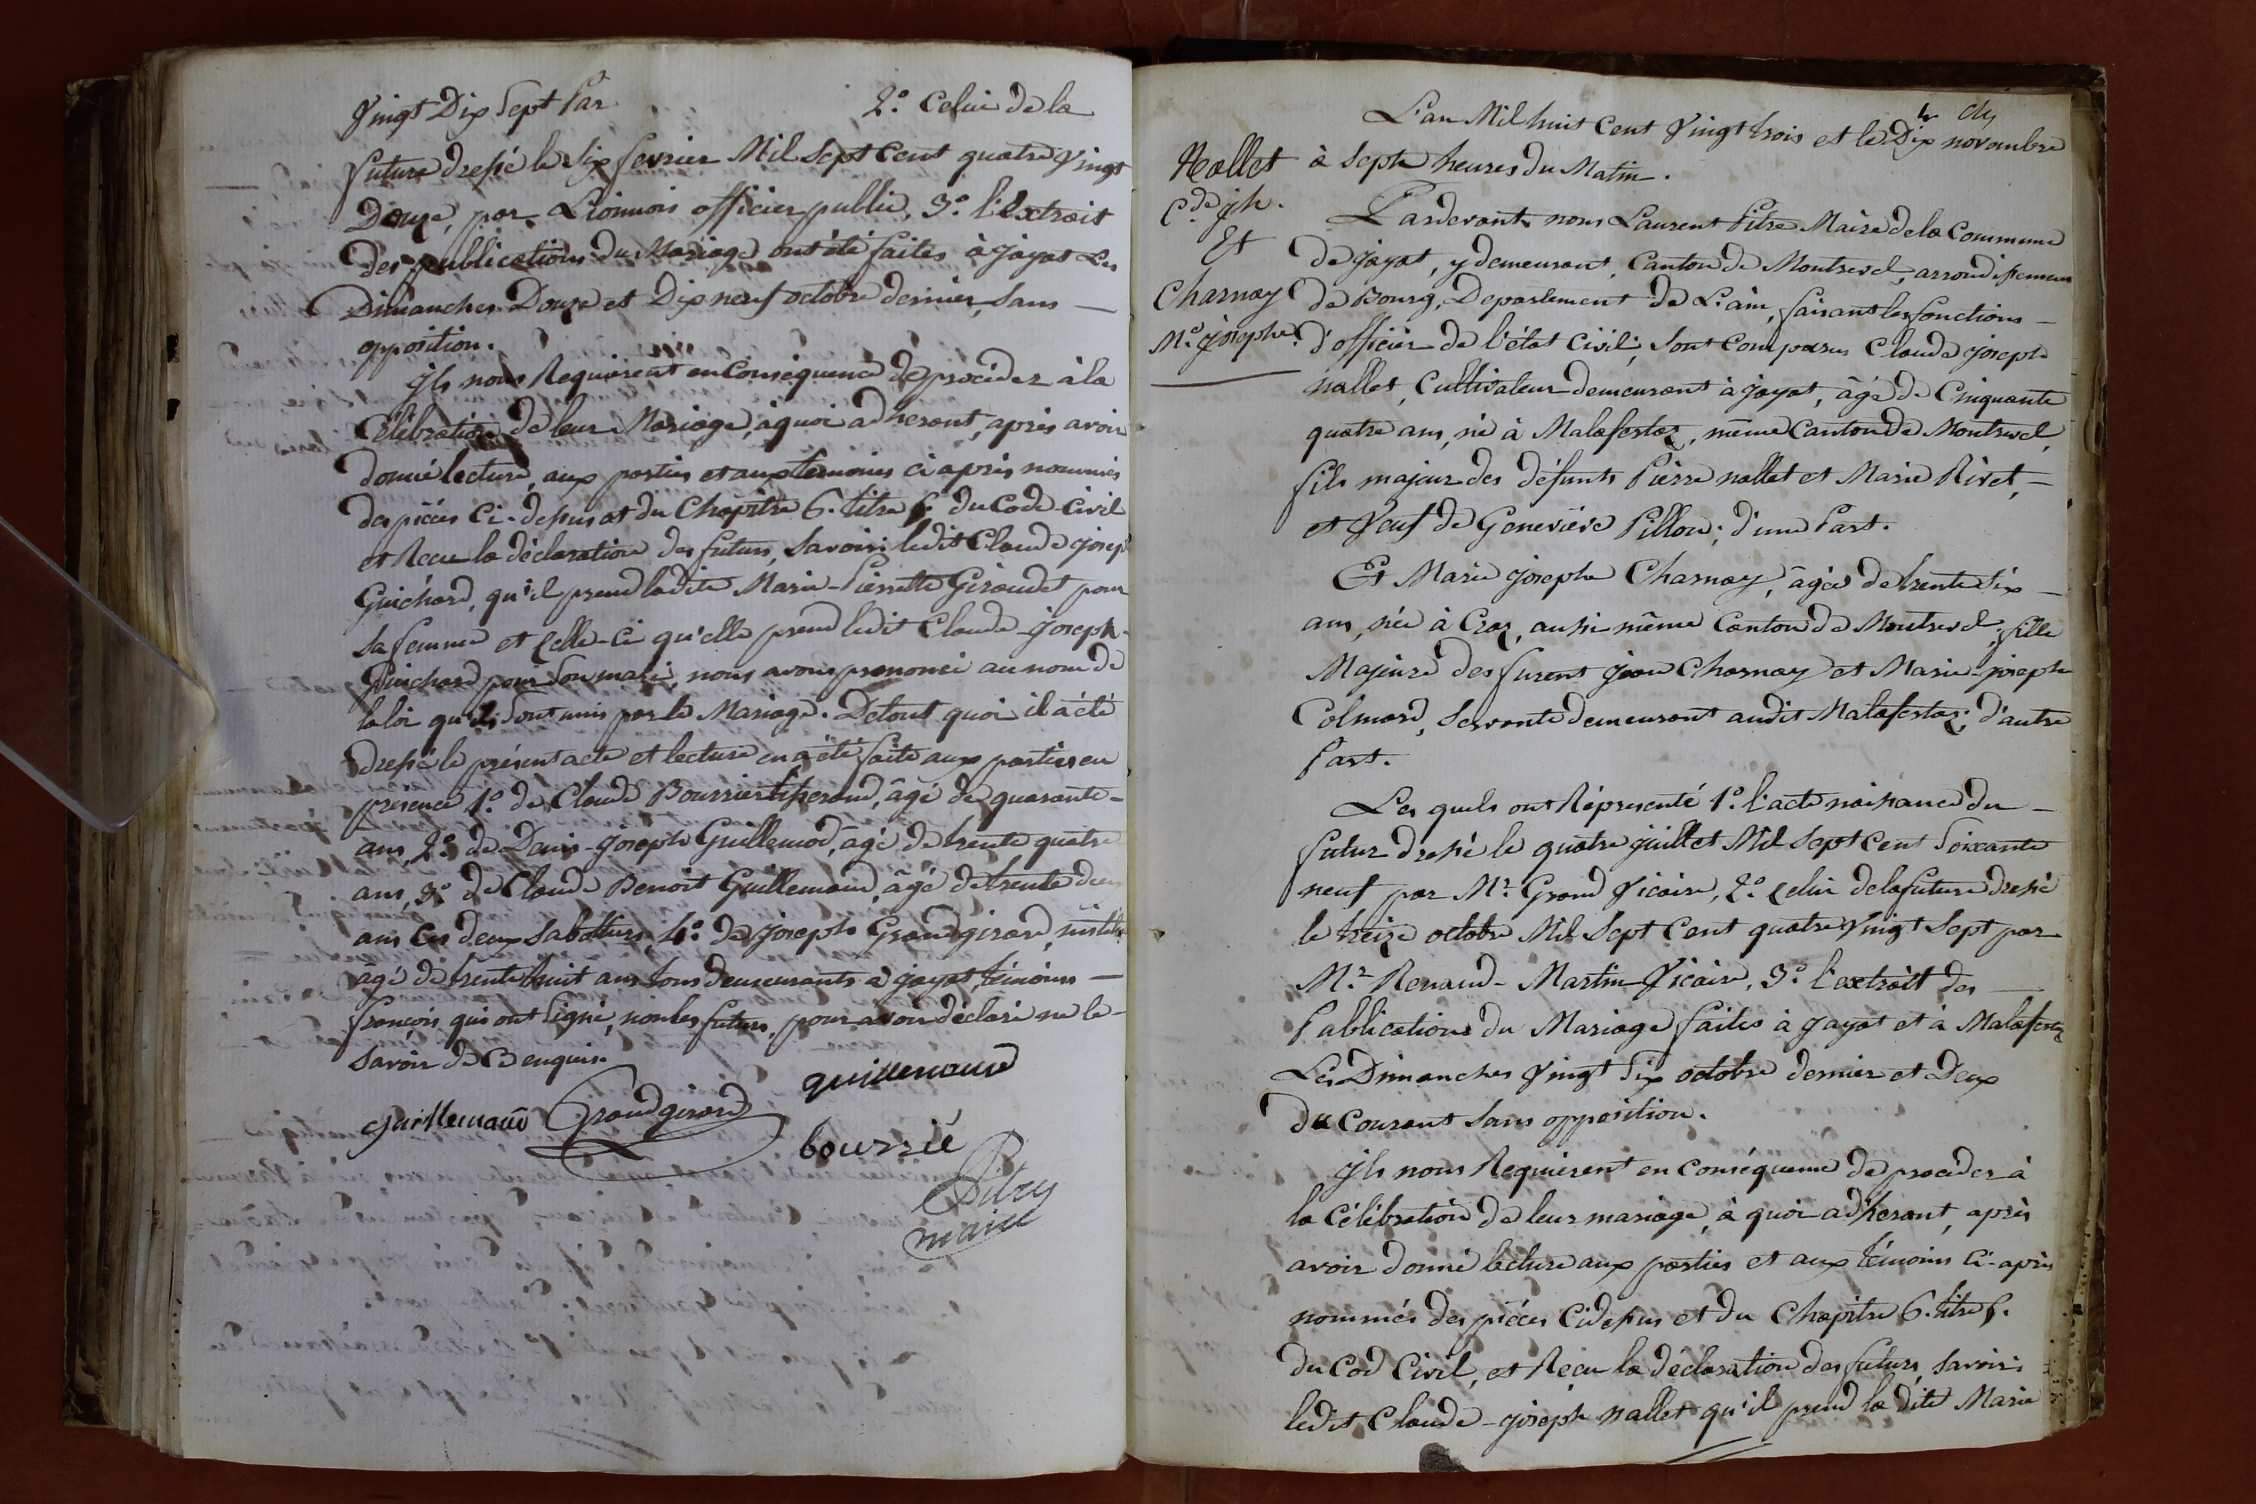 Vingt Dix Sept Par 2.° Celui de la
future dressé le Six fevrier Mil Sept Cent quatre Vingt
Douze, par Lionnois officier public, 3.° l'Extrait
des publications du Mariage ont été faites à Jayat Les
Dimanches Douze et Dix neuf octobre dernier, Sans —
opposition.
Ils nous Requierent en Conséquence de procéder à la
Célébration de leur Mariage, à quoi adherant, après avoir
donné lecture, aux parties et aux temoins ci après nommés
des pièces Ci-dessus et du Chapitre 6. titre 5. du Code Civil
et Recu la déclaration des futurs, Savoir: ledit Claude joseph
Guichard, qu'il prend ladite Marie-Pierrette Giraudet pour
Sa femme et Celle-Ci qu'elle prend ledit Claude-Joseph-
Guichard pour Son mari, nous avons prononcé au nom de
la loi qu'ils Sont unis par le Mariage. De tout quoi il a été
dressé le présent acte et lecture en a été faite aux parties en
presence 1.° de Claude Bourrier tisserand, âgé de quarante-
ans, 2.° de Denis-Joseph Guillemod, âgé de trente quatre
ans, 3.° de Claude Benoit Guillemaud, âgé de trente deux
ans Ces deux Sabottiers, 4.° de Joseph Grandgirard,
âgé de trente huit ans tous demeurants à Jayat, témoins —
françois qui ont Signé, non les futurs, pour avoir déclaré ne le-
Savoir de Ce enquis.
guillemaud
guillemaud Grandgirard
bourrié
Pitre
maire
L'an Mil huit Cent Vingt trois et le Dix novembre
Nallet à Sept heures du Matin.
C.de jh.
Pardevant nous Laurent Pitre Maire de la Commune
Et de Jayat, y demeurant, Canton de Montrevel, arrondissement
Charnay de Bourg, Departement de L'ain, faisant les fonctions —
M.e josephe. d'officier de l'état Civil, Sont Comparus Claude joseph
nallet, Cultivateur demeurant à Jayat, âgé de Cinquante
quatre ans, né à Malafretaz, même Canton de Montrevel,
fils majeur des défunts Pierre nallet et Marie Rivet, —
et Veuf de Geneviève Pillon; d'une Part.
Et Marie josephe Charnay, âgée de trente Six —
ans, née à Cras, aussi même Canton de Montrevel, fille
Majeure des furent Jean Charnay et Marie-josephe
Colmard, Servante demeurant audit Malafretaz; d'autre
Part.
Les quels ont Réprésenté 1.° l'acte naissance du —
futur dressé le quatre juillet Mil Sept Cent Soixante
neuf par M.r Grand Vicaire, 2.° Celui de la future dressé
le treize octobre Mil Sept Cent quatre Vingt Sept par
M.r Renaud-Martin Vicaire, 3.° l'extrait des —
Publications du Mariage faites à Jayat et à Malafretaz
Les Dimanches Vingt Six octobre dernier et Deux
du Courant Sans opposition.
Ils nous Requierent en Conséquence de procéder à
la Célébration de leur mariage, à quoi adherant, après
avoir donné lecture aux parties et aux témoins Ci-après
nommés des pièces Cidessus et du Chapitre 6. titre 5.
du Cod Civil, et Reçu la déclaration des futurs, Savoir:
ledit Claude-joseph nallet qu'il prend la dite Marie